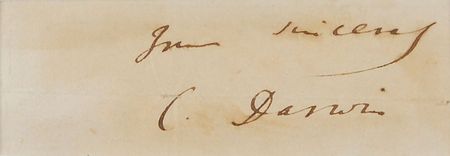 Yours sincerely
C. Darwin